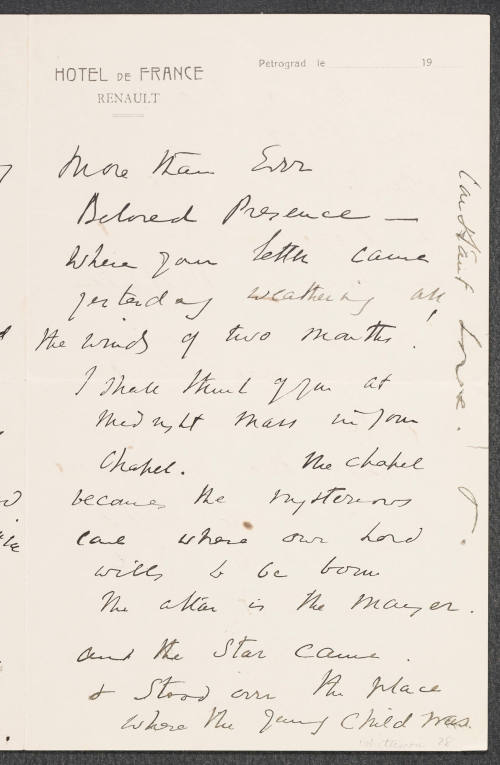 HOTEL DE FRANCE
RENAULT
Petrograd le 19
More than Ever
Beloved Presence —
Where your letter came
yesterday weathering all
the winds of two months!
I shall think of you at
Midnight Mass in your
Chapel. The chapel
becomes the mysterious
cave where our Lord
wills to be born
The altar is the Manger.
and the Star came.
& Stood over the place
where the young Child was.
Constant Love.